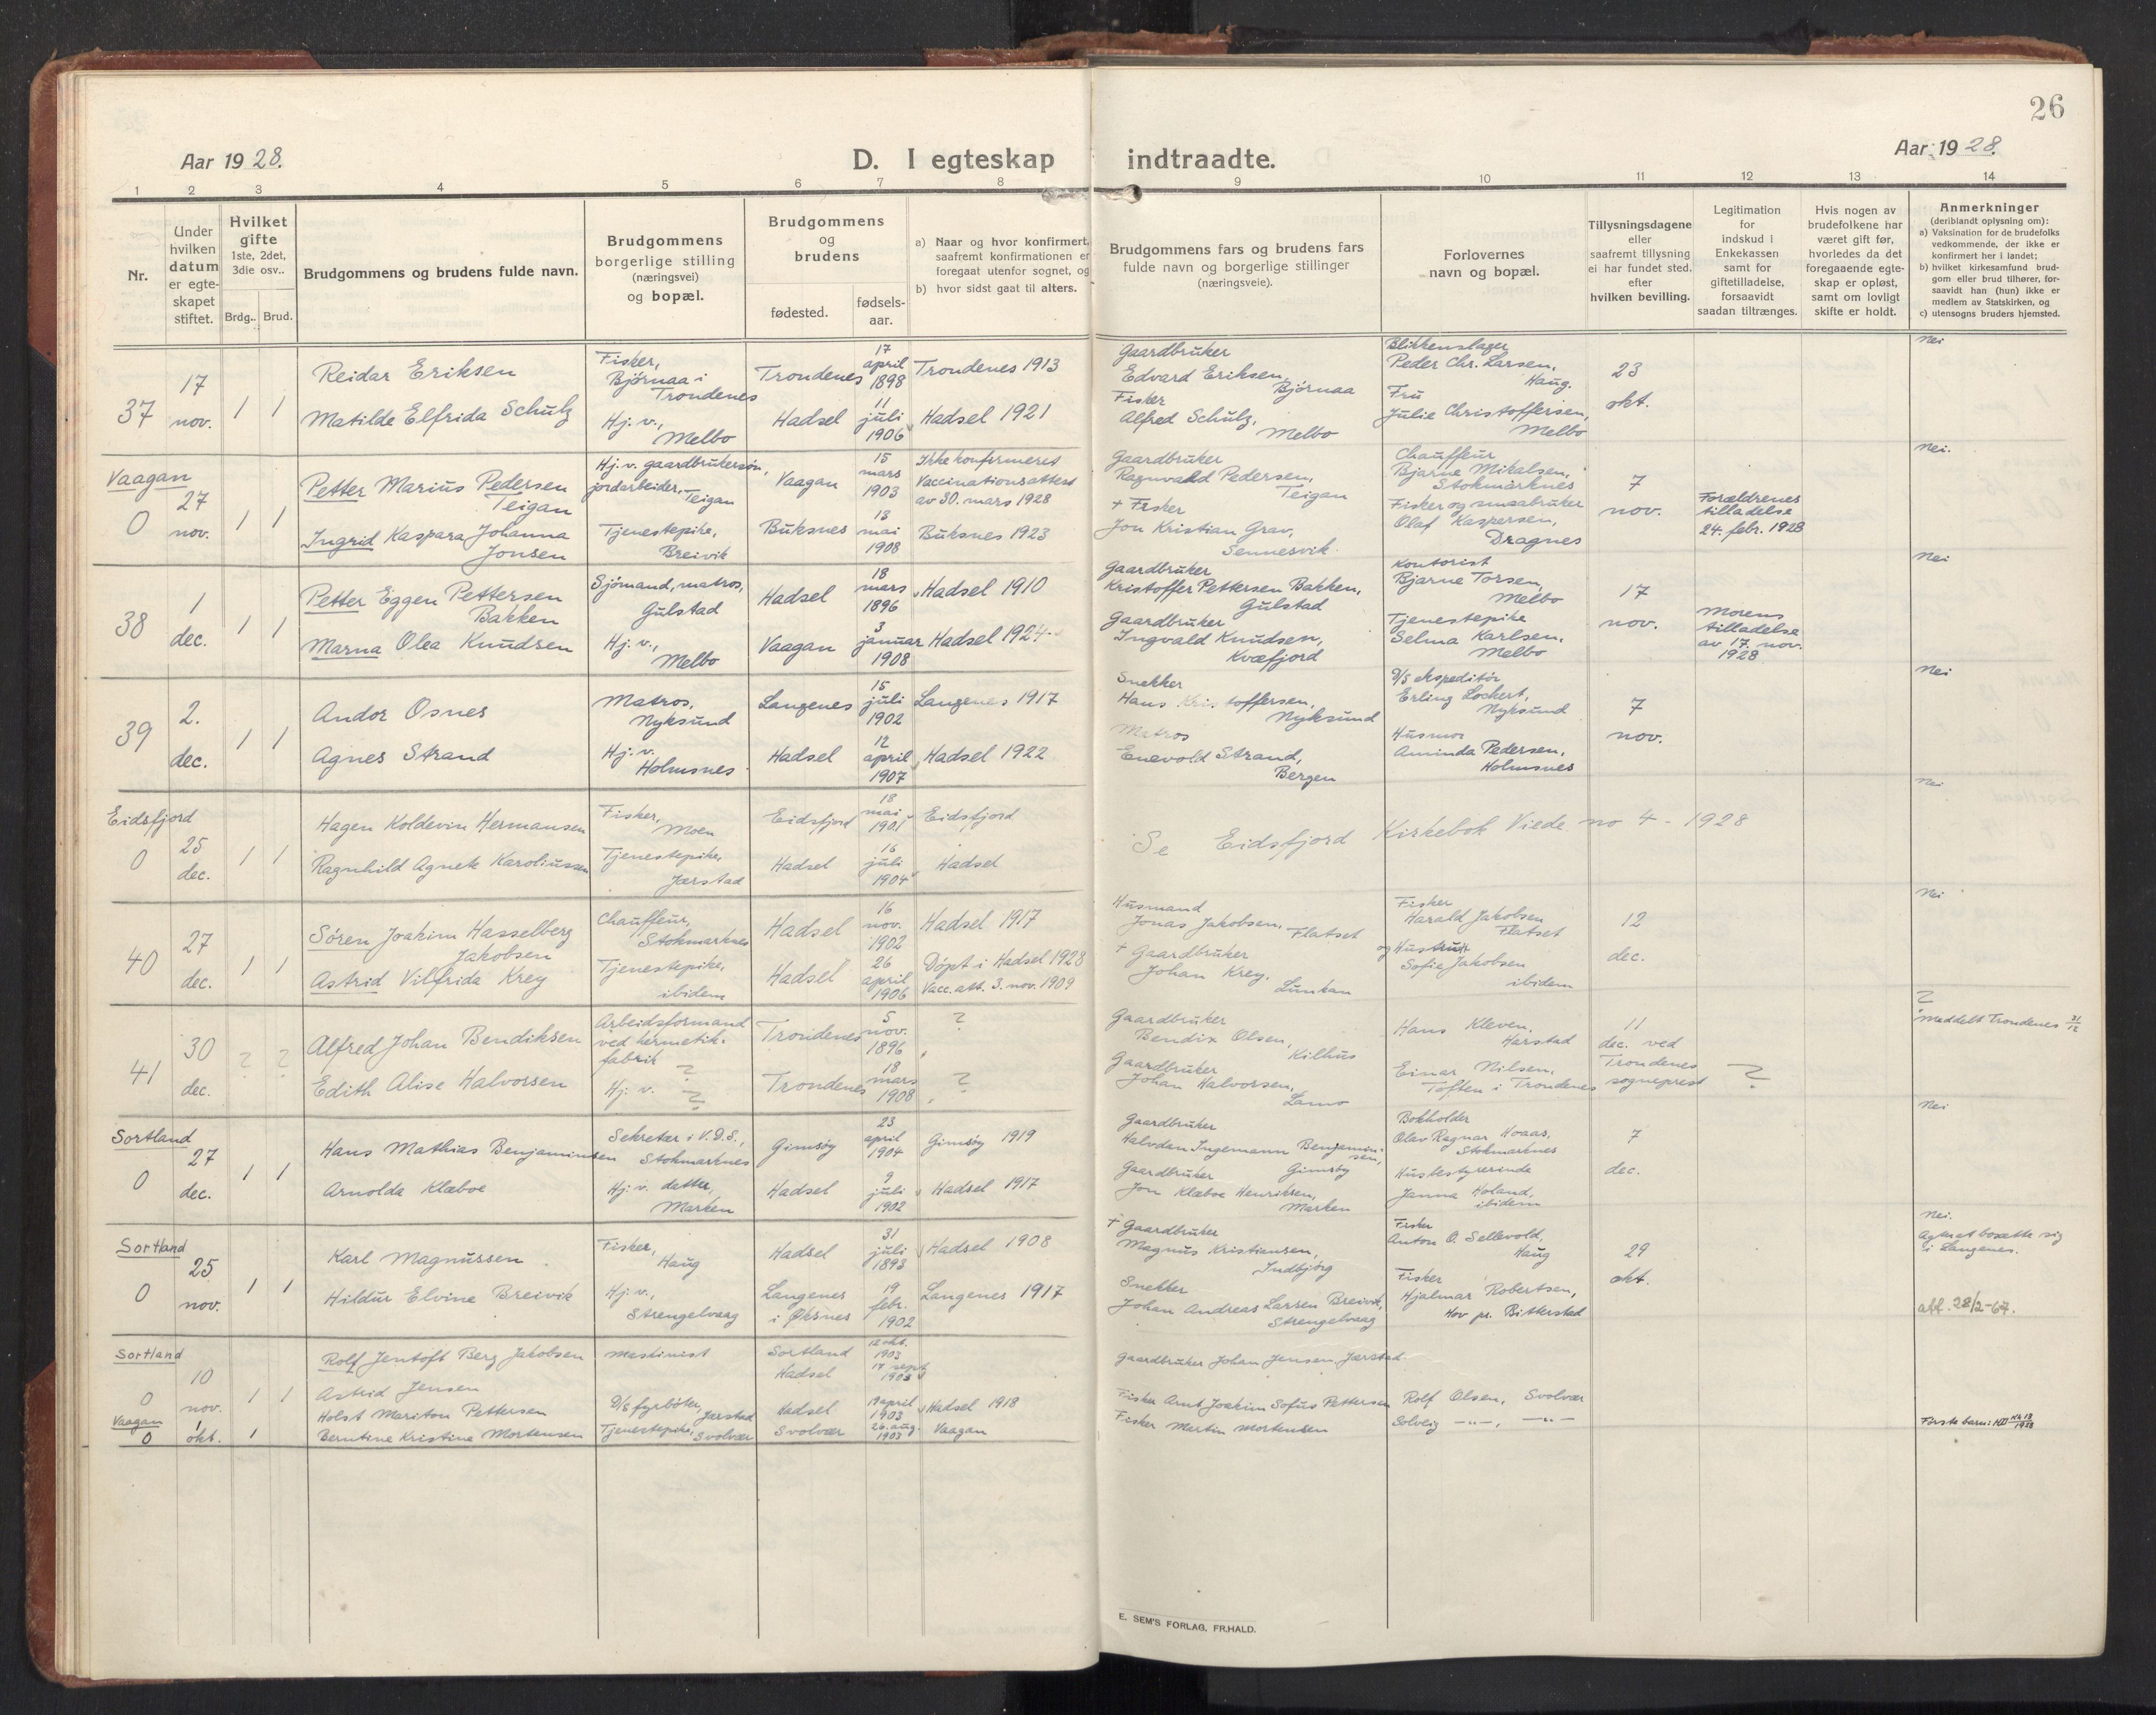 26
Aar 1928.
D. I egteskap indtraadte.
Aar 1928.
1 2 3 4 5 6 7 8 9 10 11 12 13 14
Nr.
Under hvilken datum er egteskapet stiftet.
Hvilket gifte 1ste, 2det, 3die osv..
Brdg.. Brud.
Brudgommens og brudens fulde navn.
Brudgommens borgerlige stilling (næringsvei) og bopæl.
Brudgommens og brudens
fødested.
fødsels-aar.
a) Naar og hvor konfirmert, saafremt konfirmationen er foregaat utenfor sognet, og
b) hvor sidst gaat til alters.
Brudgommens fars og brudens fars fulde navn og borgerlige stillinger (næringsveie).
Forlovernes navn og bopæl.
Tillysningsdagene eller saafremt tillysning ei har fundet sted, efter hvilken bevilling.
Legitimation for indskud i Enkekassen samt for giftetilladelse, forsaavidt saadan tiltrænges.
Hvis nogen av brudefolkene har været gift før, hvorledes da det foregaaende egteskap er opløst, samt om lovligt skifte er holdt.
Anmerkninger
(deriblandt oplysning om):
a) Vaksination for de brudefolks vedkommende, der ikke er konfirmert her i landet;
b) hvilket kirkesamfund brudgom eller brud tilhører, forsaavidt han (hun) ikke er medlem av Statskirken, og
c) utensogns bruders hjemsted.
37 17 nov. 1 1
Reidar Eriksen
Fisker, Bjørnaa i Trondenes
Trondenes 17 april 1898 Trondenes 1913
Gaardbruker Edvard Eriksen, Bjørnaa
Blikkenslager Peder Chr. Larsen, Haug.
23 okt.
Nei
Matilde Elfrida Schulz
Hj. v., Melbo
Hadsel 11 juli 1906 Hadsel 1921
Fisker Alfred Schulz, Melbo
Fru Julie Christoffersen, Melbo
Vaagan
0 27 nov. 1 1
Petter Marius Pedersen Teigan
Hj. v. gaardbrukersøn, jordarbeider, Teigan
Vaagan 15 mars 1903
Ikke konfirmeret Vaccinationsattest av 30. mars 1928
Gaardbruker Ragnvald Pedersen, Teigan
Chauffeur Bjarne Mikalsen, Stokmarknes
7 nov.
Forældrenes tilladelse 24. febr. 1928
Nei.
Ingrid Kaspara Johanna Jonsen
Tjenestepike, Breivik
Buksnes 13 mai 1908 Buksnes 1923
+ Fisker Jon Kristian Grav, Sennesvik.
Fisker og smaabruker Olaf Kaspersen, Dragnes
38 1 dec. 1 1
Petter Eggen Pettersen Bakken
Sjömand, matros, Gulstad
Hadsel 18 mars 1896 Hadsel 1910
Gaardbruker Kristoffer Pettersen Bakken, Gulstad
Kontorist Bjarne Torsen, Melbo
17 nov.
Morens tilladelse av 17. nov. 1928
Nei
Marna Olea Knudsen
Hj. v., Melbo
Vaagan 3 januar 1908 Hadsel 1924
Gaardbruker Ingvald Knudsen, Kvæfjord
Tjenestepike Selma Karlsen, Melbo
39 2. dec. 1 1
Andor Osnes
Matros, Nyksund
Langenes 15 juli 1902 Langenes 1917
Snekker Hans Kristoffersen, Nyksund
D/S ekspeditør Erling Lockert, Nyksund
7 nov.
Nei
Agnes Strand
Hj. v. Holmsnes
Hadsel 12 april 1907 Hadsel 1922
Matros Enevold Strand, Bergen
Husmor Aminda Pedersen, Holmsnes
Eidsfjord
0 25 dec. 1 1
Hagen Koldevin Hermansen
Fisker, Moen
Eidsfjord 18 mai 1901 Eidsfjord
Se Eidsfjord Kirkebok Viede no 4 - 1928
Nei
Ragnhild Agnete Karoliussen
Tjenestepike, Jarstad
Hadsel 16 juli 1904 Hadsel
40 27 dec. 1 1
Søren Joakim Hasselberg Jakobsen
Chauffeur, Stokmarknes
Hadsel 16 nov. 1902 Hadsel 1917
Husmand Jonas Jakobsen, Flatset
Fisker Harald Jakobsen Flatset
12 dec.
Nei
Astrid Vilfrida Krey
Tjenestepike, ibidem
Hadsel 26 april 1906
Döpt i Hadsel 1928 Vacc. att. 3. nov. 1909
+ Gaardbruker Johan Krey, Lunkan
og Hustru Sofie Jakobsen ibidem
41 30 dec. ? ?
Alfred Johan Bendiksen
Arbeidsformand ved hermetikfabrik ?
Trondenes 5 nov. 1896 ?
Gaardbruker Bendix Olsen, Kilhus
Hans Kleven, Harstad
11 dec. ved Trondenes sogneprest
?
? Meddelt Trondenes 31/12
Edith Alise Halvorsen
Hj. v. ?
Trondenes 18 mars 1908 ?
Gaardbruker Johan Halvorsen,
Einar Nilsen, Toften i Trondenes
Sortland
0 27 dec. 1 1
Hans Mathias Benjaminsen
Sekretær i V.D.S., Stokmarknes
Gimsøy 23 april 1904 Gimsøy 1919
Gaardbruker Halvdan Ingemann Benjaminsen, Gimsøy
Bokholder Olav Ragnar Hoaas, Stokmarknes
7 dec.
Nei
Arnolda Klæboe
Hj. v. datter, Marken
Hadsel 9 juli 1902 Hadsel 1917
Gaardbruker Jon Klæboe Henriksen, Marken
Husbestyrerinde Janna Holand, ibidem
Sortland
0 25 nov. 1 1
Karl Magnussen
Fisker, Haug
Hadsel 31 juli 1893 Hadsel 1908
+ Gaardbruker Magnus Kristiansen, Indbjörg
Fisker Anton O. Sellevold, Haug
29 okt.
Nei. Agter at bosætte sig i Langenes.
Hildur Elvine Breivik
Hj. v., Strengelvaag
Langenes i Øksnes 19 febr. 1902 Langenes 1917
Snekker Johan Andreas Larsen Breivik, Strengelvaag
Fisker Hjalmar Robertsen, Hov pr. Bitterstad
att. 28/2-67.
Sortland
0 10 nov. 1 1
Rolf Jentoft Berg Jakobsen
Maskinist
Sortland 12 okt. 1903
Astrid Jensen
Hadsel 17 sept. 1903
Gaardbruker Johan Jensen, Jarstad.
Vaagan
0 1 okt. 1
Holst Mariton Pettersen
D/S fyrböter, Jarstad
Hadsel 19 april 1903 Hadsel 1918
Fisker Arnt Joakim Sofus Pettersen
Rolf Olsen, Svolvær
Berntine Kristine Mortensen
Tjenestepike, Svolvær
Svolvær 26. aug. 1903 Vaagan
Fisker Martin Mortensen
Solveig —"—, —"—
Første barn:
E. SEM'S FORLAG, FR.HALD.